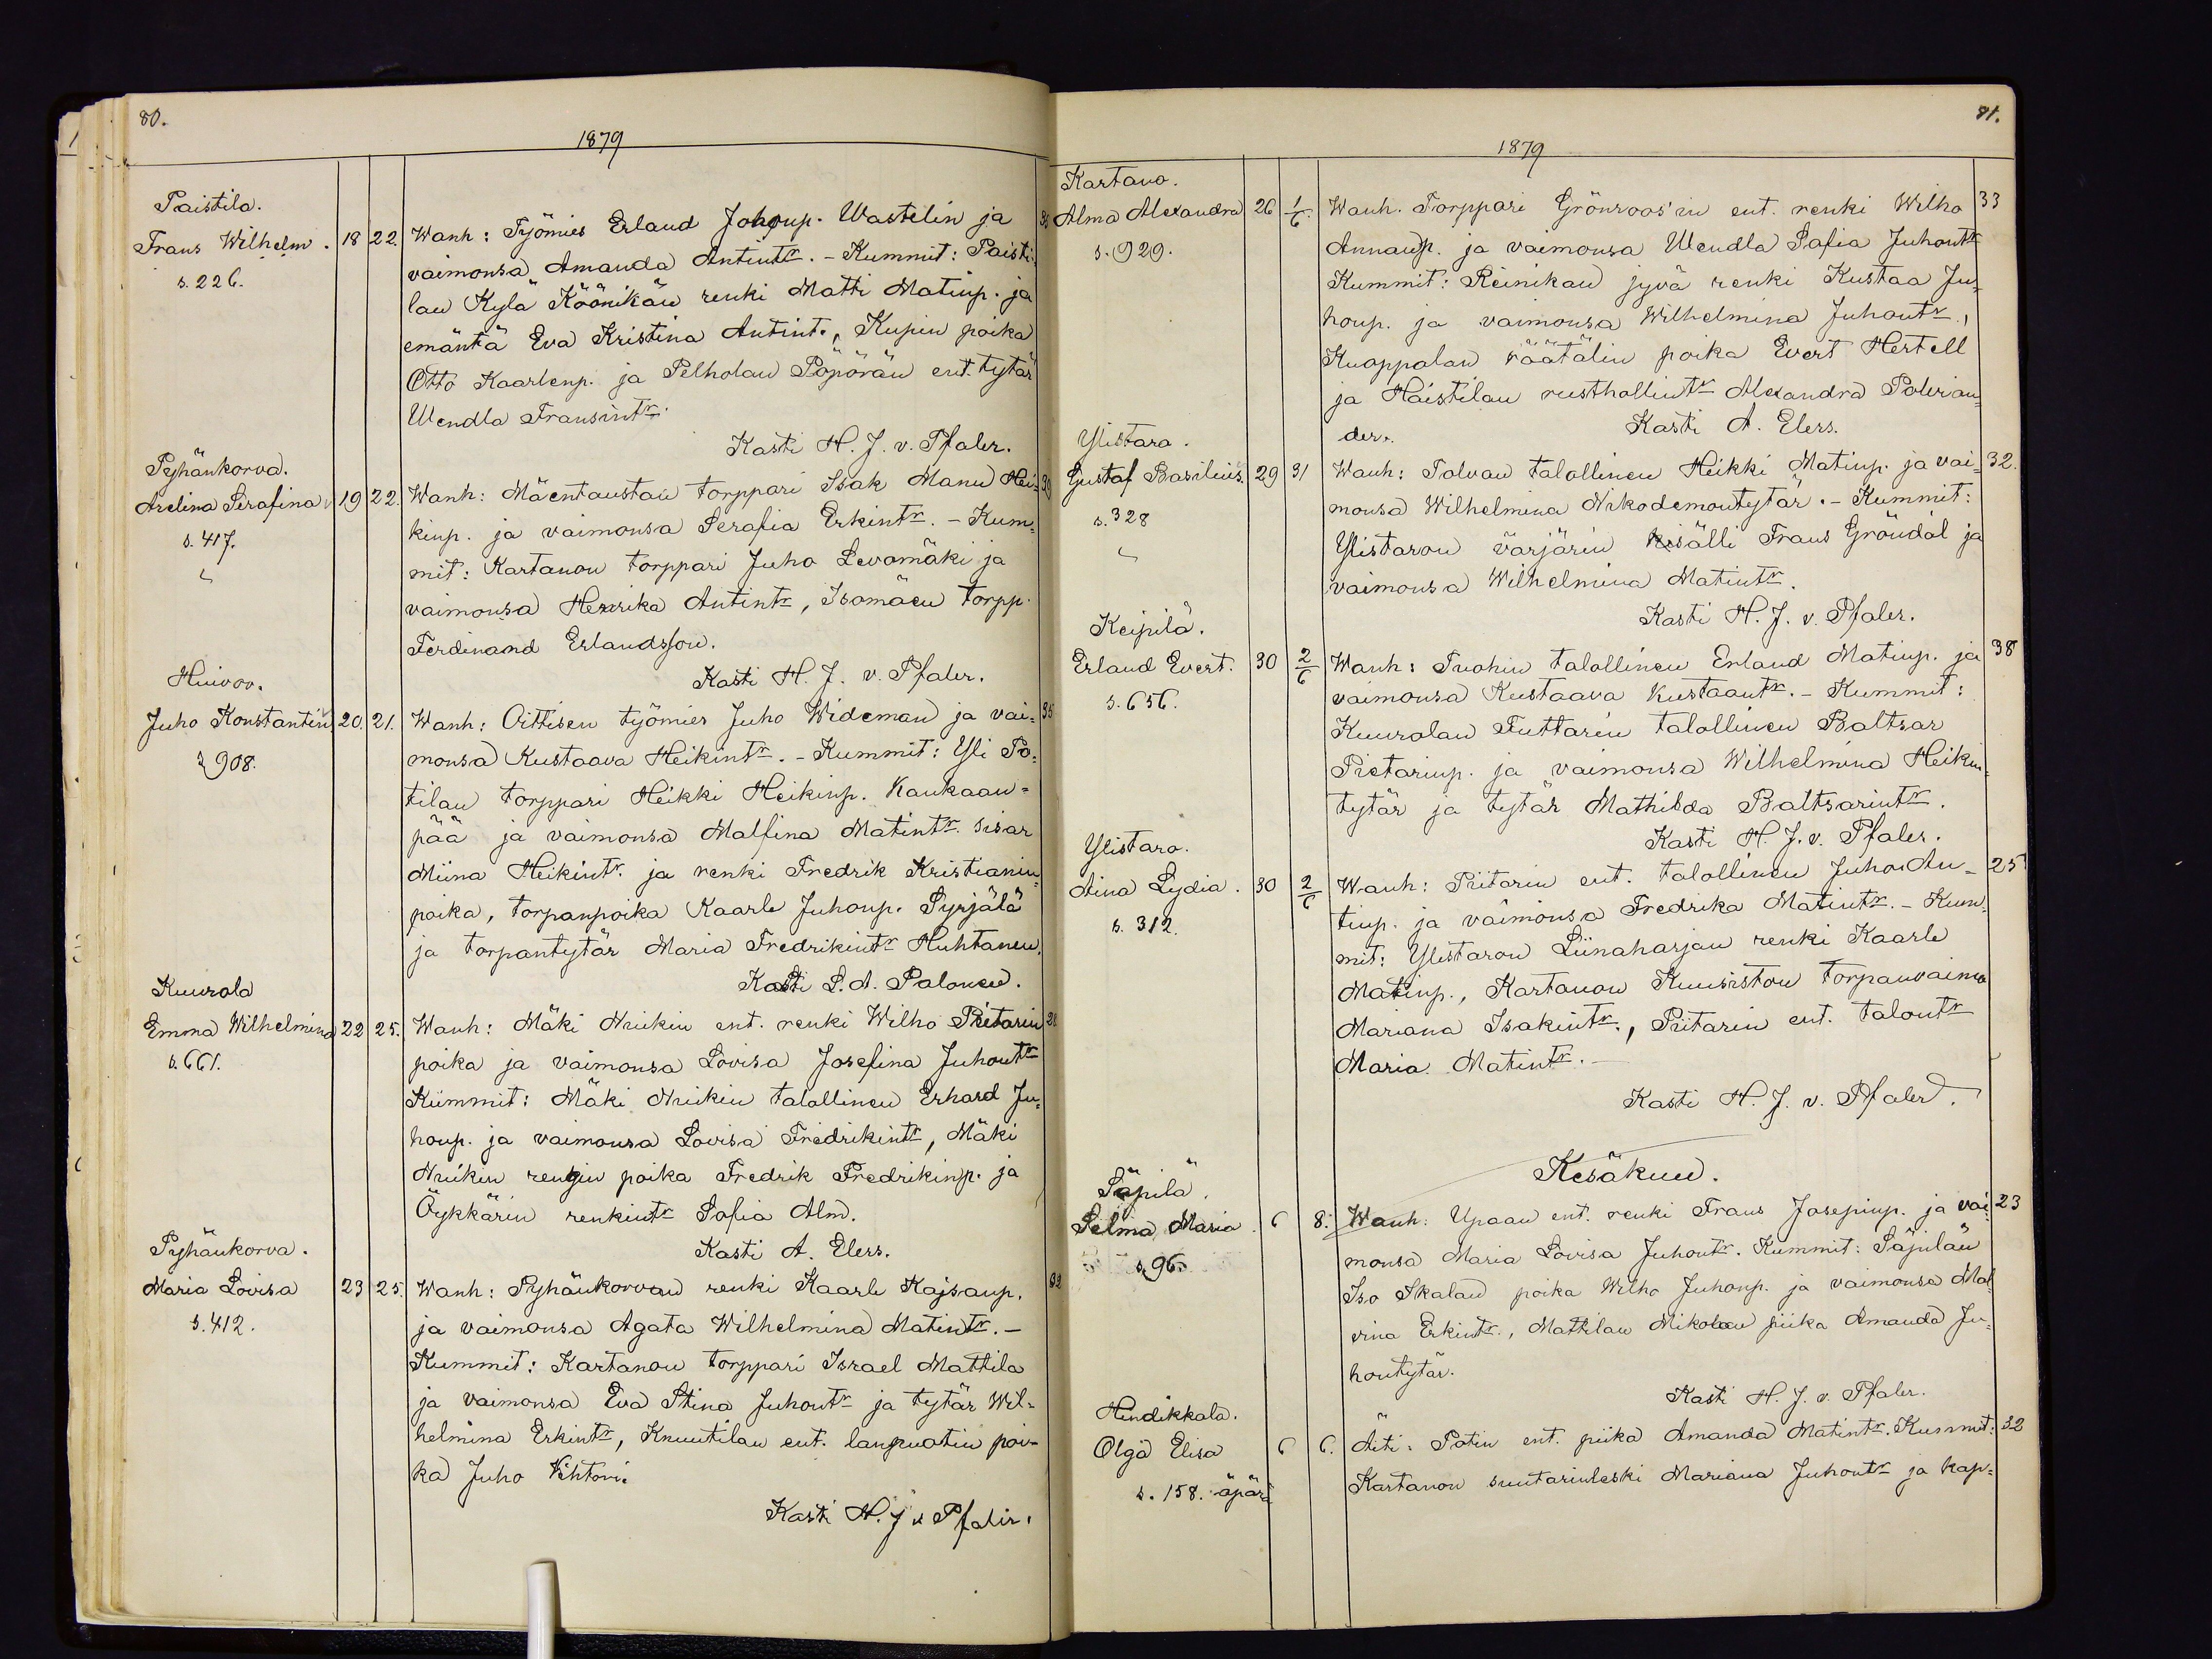 80.
1879
Paistila.
Frans Wilhelm. 18 22. Wanh: Työmies Erland Johonp. Wastelin ja
s. 226. vaimonsa Amanda Antintr. - Kummit: Paisti-
lan Kylä Köönikän renki Matti Matinp. ja
emäntä Eva Kristina Antint., Kupin poika
Otto Kaarlenp. ja Pelholan Pöpörän ent. tytär
Wendla Fransintr.
Kasti H. J. v. Pfaler.
Pyhänkorva.
Arelina Serafina 19 22. Wanh: Mäentaustan torppari Isak Manu Hei-
s. 417. kinp. ja vaimonsa Serafia Erkintr. - Kum-
mit: Kartanon torppari Juho Levomäki ja
vaimonsa Henrika Antintr, Isomäen torpp.
Ferdinand Erlandsson.
Kasti H. J. v. Pfaler.
Huivoo.
Juho Konstantin 20. 21. Wanh: Oittisen työmies Juho Wideman ja vai- 35
s 908. monsa Kustaava Heikintr. - Kummit: Yli Po-
tilan torppari Heikki Heikinp. Kankaan-
pää ja vaimonsa Malfina Matintr. sisar
Miina Heikintr. ja renki Fredrik Kristianin-
poika, torpanpoika Kaarle Juhonp. Syrjälä
ja torpantytär Maria Fredrikintr Huhtanen.
Kasti L. A. Palonen.
Kuurola
Emma Wilhelmina 22 25. Wanh: Mäki Nuikin ent. renki Wilho Pietarin
s. 661. poika ja vaimonsa Lovisa Josefina Juhontr
Kummit: Mäki Nuikin talollinen Erhard Ju-
honp. ja vaimonsa Lovisa Fredrikintr, Mäki
Nuikin rengin poika Fredrik Fredrikinp. ja
Öykkärin renkintr Sofia Alm.
Kasti A. Elers.
Pyhänkorva.
Maria Lovisa 23 25. Wanh: Pyhänkorvan renki Kaarle Kajsanp.
s. 412. ja vaimonsa Agata Wilhelmina Matintr. -
Kummit: Kartanon torppari Israel Mattila
ja vaimonsa Eva Stina Juhontr ja tytär Wil-
helmina Erkintr, Knuutilan ent. lanpuotin poi-
ka Juho Vihtori.
Kasti H. J. v Pfaler.
81.
1879
Kartano.
Alma Alexandra 26 1/6. Wanh. Torppari Grönroos'in ent. renki Wilho 33
s. 929. Annanp. ja vaimonsa Wendla Safia Juhontr
Kummit: Reinikan jyvä renki Kustaa Ju-
honp. ja vaimonsa Wilhelmina Juhontr.,
Kuoppalan räätälin poika Evert Hertell
ja Haistilan rusthollintr Alexandra Polvian-
der. Kasti A. Elers.
Ylistaro.
Gustaf Basilius. 29 31 Wanh: Tolvan talollinen Heikki Matinp. ja vai- 32.
s. 328 monsa Wilhelmina Nikodemontytär. - Kummit:
Ylistaron värjärin kisälli Frans Gröndal ja
vaimonsa Wilhelmina Matintr.
Kasti H. J. v. Pfaler.
Keipilä.
Erland Evert. 30 2/6 Wanh: Tuohin talollinen Erland Matinp. ja 38
s. 656. vaimonsa Kustaava Kustaantr. - Kummit:
Kuurolan Tuttarin talollinen Baltsar
Pietarinp. ja vaimonsa Wilhelmina Heikin-
tytär ja tytär Mathilda Baltsarintr.
Kasti H. J. v. Pfaler.
Ylistaro.
Aina Lydia. 30 2/6 Wanh: Piitarin ent. talollinen Juho An- 25
s. 312. tinp. ja vaimonsa Fredrika Matintr. - Kum-
mit: Ylistaron Liinaharjan renki Kaarle
Matinp., Kartanon Kuusiston torpanvaimo
Mariana Isakintr., Piitarin ent. talontr
Maria Matintr. -
Kasti H. J. v. Pfaler.
Kesäkuu.
Säpilä.
Selma Maria. 6 8. Wanh: Upaan ent. renki Frans Josepinp. ja vai- 23
s. 96. monsa Maria Lovisa Juhontr. Kummit: Säpilän
Iso Skalan poika Wilho Juhonp. ja vaimonsa Mal
vina Erkintr., Mattilan Mikolan piika Amanda Ju-
hontytär.
Kasti H. J. v. Pfaler.
Hundikkala.
Olga Elisa 6 6. Äiti: Potin ent. piika Amanda Matintr. Kummit: 32
s. 158. äpärä Kartanon suutarinleski Mariana Juhontr ja kap-